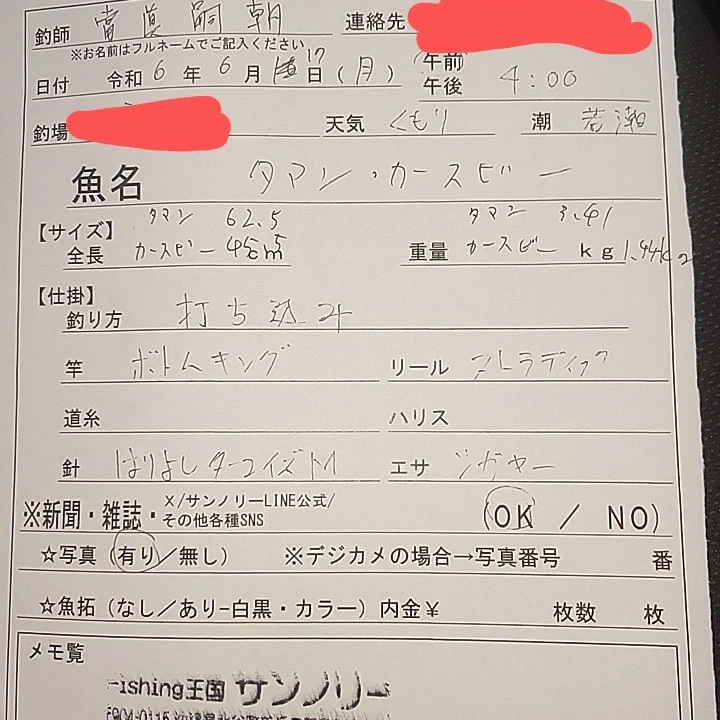 釣師 當眞嗣朝 連絡先
※お名前はフルネームでご記入ください
日付 令和6年6月17日(月) 午前 午後 4:00
釣場 天気 くもり 潮 若潮
魚名 タマン・カースビー
【サイズ】 タマン 62.5 タマン 3.41
全長 カースビー 45cm 重量 カースビー kg 1.94kg
【仕掛】
釣り方 打ち込み
竿 ボトムキング リール ストラディック
道糸 ハリス
針 はりよしターコイズ エサ シガヤー
※新聞・雑誌・X/サンノリーLINE公式/その他各種SNS (OK / NO)
☆写真(有り/無し) ※デジカメの場合→写真番号 番
☆魚拓(なし/あり-白黒・カラー)内金¥ 枚数 枚
メモ覧
Fishing王国 サンノリー